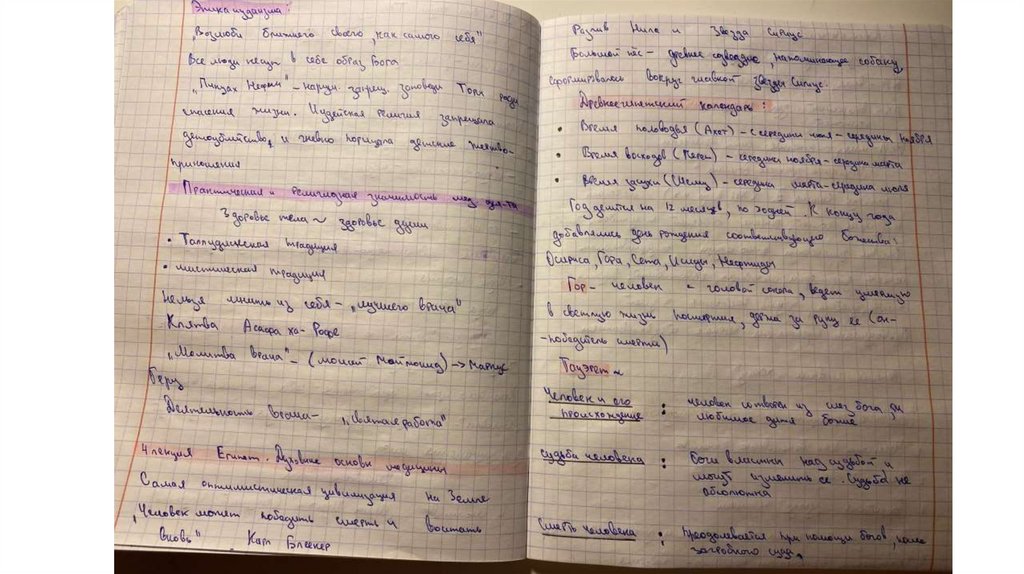 Этика иудаизма:
„Возлюби ближнего своего, как самого себя"
Все люди несут в себе образ Бога
„Пикуах Нефеш" – наруш. запрещ. заповеди Торы ради
спасения жизни. Иудейская религия запрещала
детоубийство, и гневно порицала детские жертво-
приношения
Практическая и религиозная значимость мед. дея-ти
Здоровье тела ~ здоровье души
• Талмудическая традиция
• мистическая традиция
Нельзя мнить из себя – „лучшего врача"
Клятва Асафа ха-Рофе
„Молитва врача" – (Моисей Маймонид) → Маркус
Герц
Деятельность врача – „святая работа"
4 лекция Египет. Духовные основы медицины
Самая оптимистическая цивилизация на Земле
„Человек может победить смерть и восстать
вновь" Карл Блеекер
Разлив Нила и Звезда Сириус
Большой пёс – древнее созвездие, напоминающее собаку,
сформировалось вокруг главной звезды Сириус.
Древнеегипетский календарь:
• Время половодья (Ахет) – с середины июля – середины ноября
• Время всходов (Перет) – середина ноября – середина марта
• Время засухи (Шему) – середина марта – середина июля
Год делится на 12 месяцев, по 30 дней. К концу года
добавлялись дни рождения соответствующих божества:
Осириса, Гора, Сета, Исиды, Нефтиды
Гор – человек с головой сокола, ведет умершую
в светлую жизнь посмертия, держа за руку ее (он-
-победитель смерти)
Таурет ~
Человек и его происхождение : человек сотворен из слез бога, он
любимое дитя божие
Судьба человека : Боги властны над судьбой и
могут изменить ее. Судьба не
абсолютна
Смерть человека : преодолевается при помощи богов, после
загробного суда,